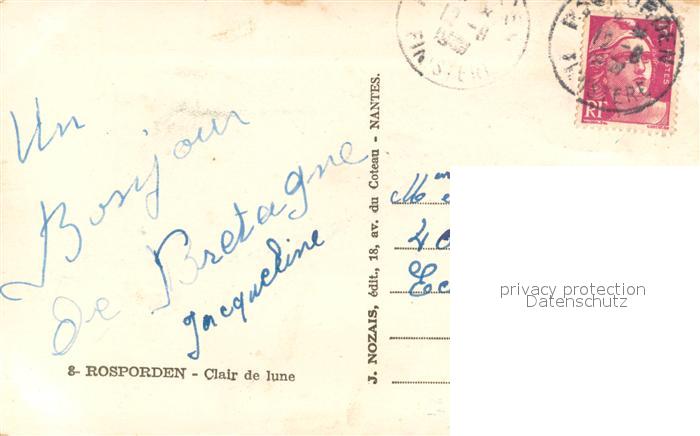 ROSPORDEN
FINISTERE
RF
POSTES
Un
Bonjour
de Bretagne
Jacqueline
8- ROSPORDEN - Clair de lune
J. NOZAIS, édit., 18, av. du Coteau - NANTES.
Mme
privacy protection
Datenschutz